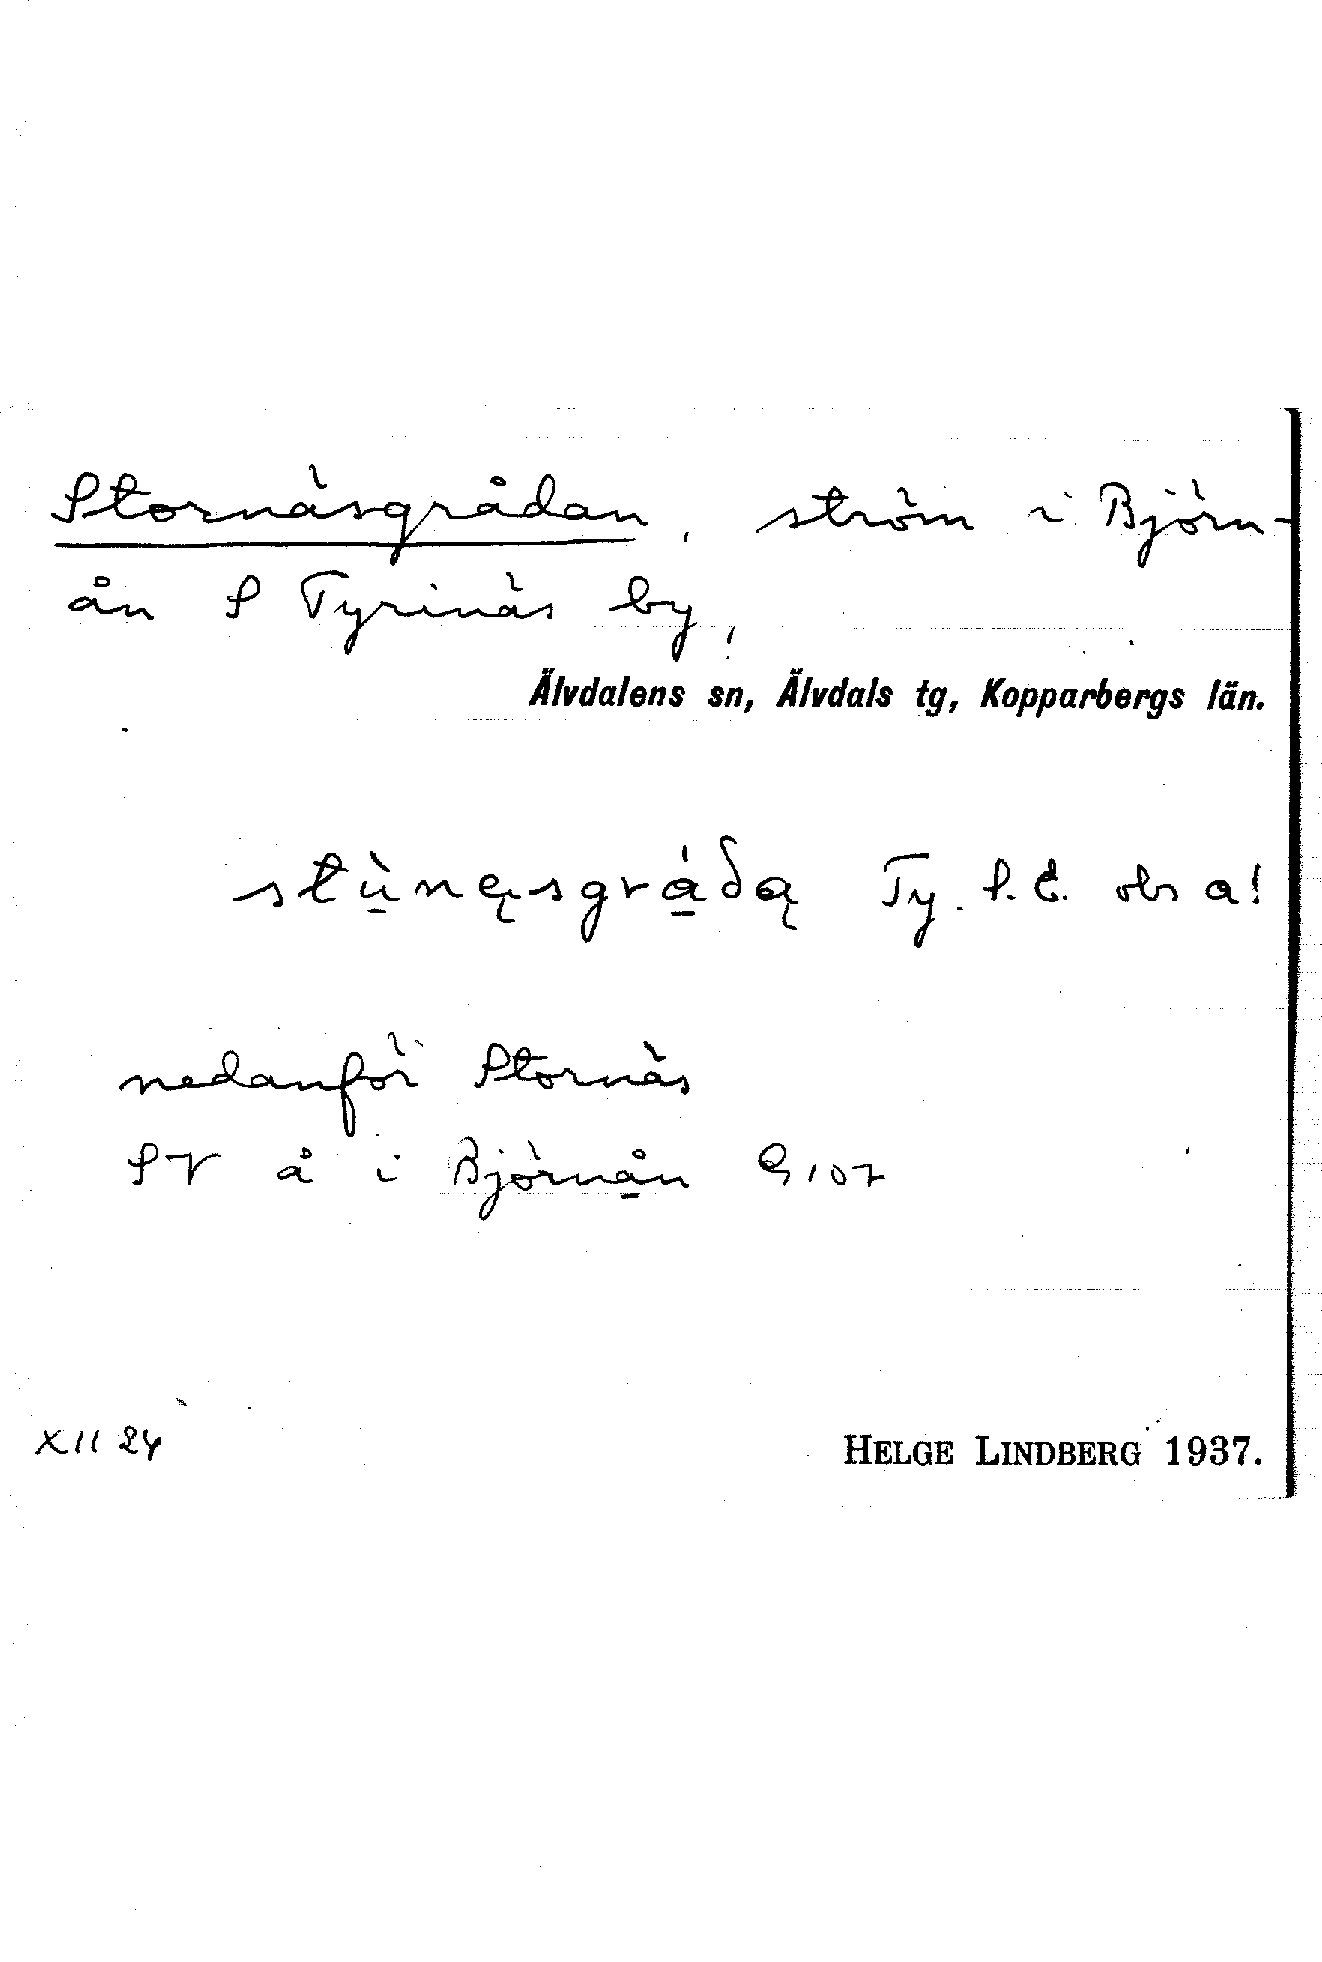 Stornäsgrådan, ström i Björn-
ån S Tyrinäs by,
Älvdalens sn, Älvdals tg, Kopparbergs län.
stù̱nę̀sgrá̱dą Ty. S.E. obs a!
nedanför Stornäs
SV å i Björnån G107
XII 24
HELGE LINDBERG 1937.